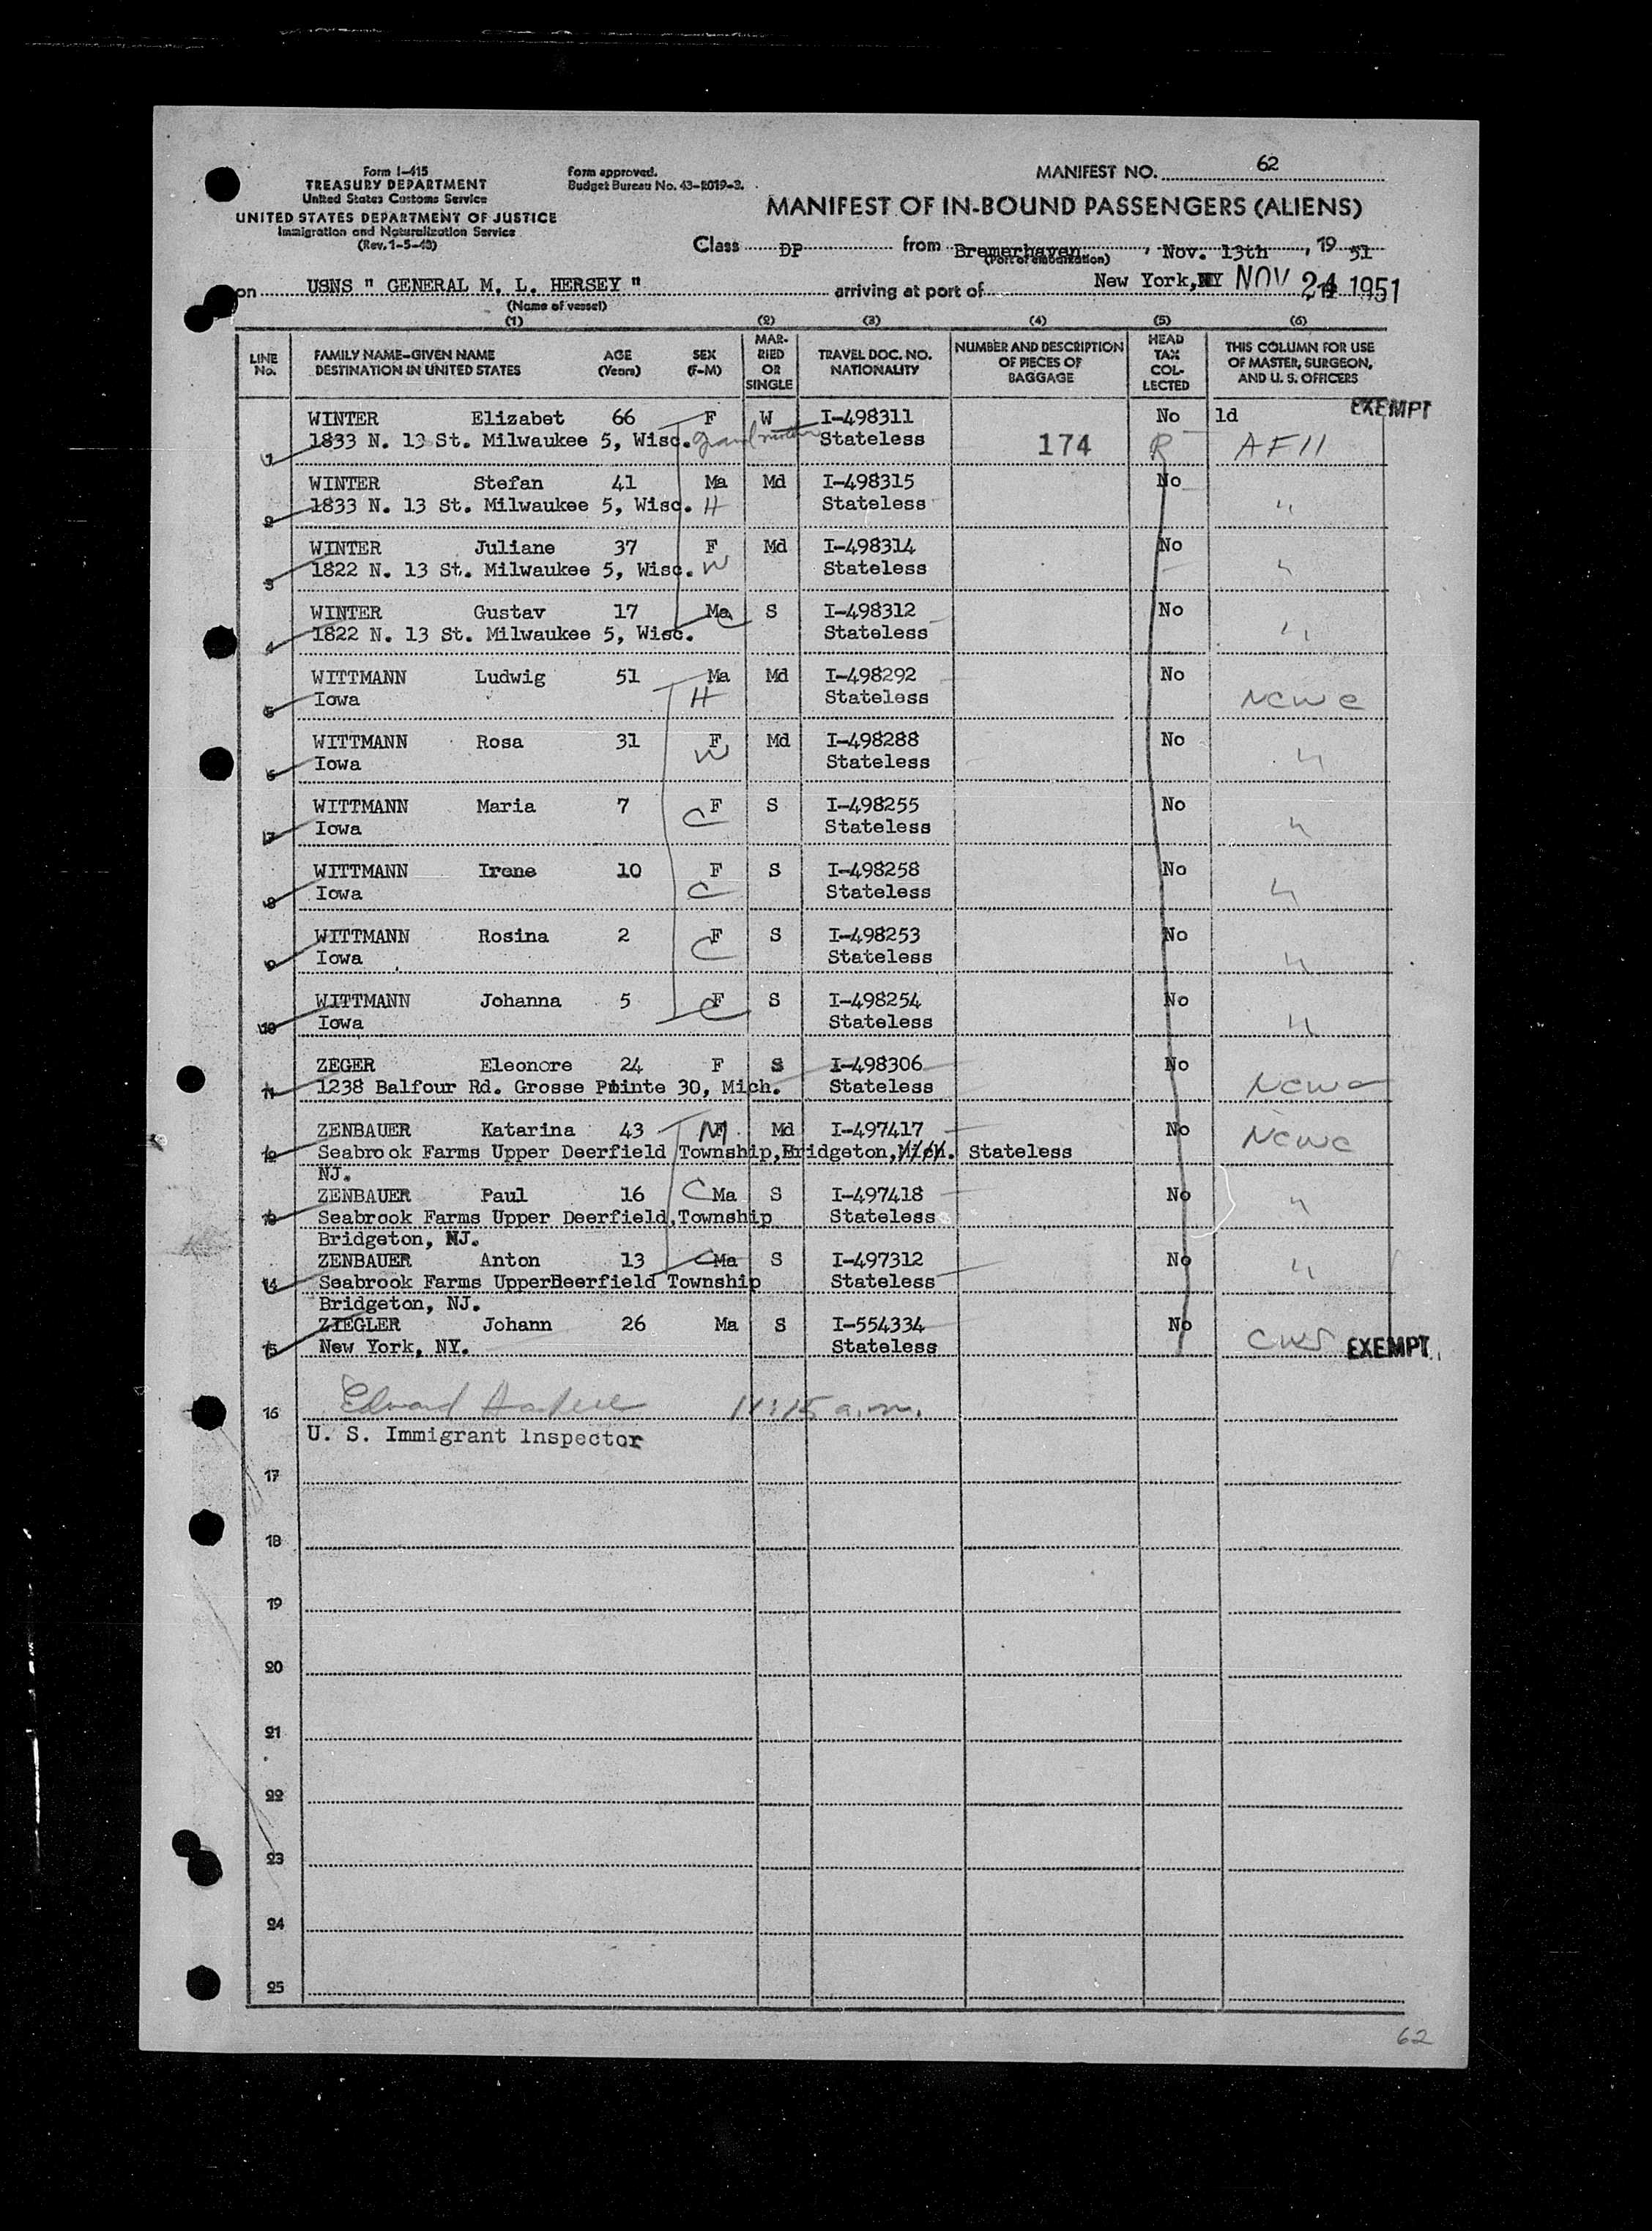 Form I-415
TREASURY DEPARTMENT
United States Customs Service
UNITED STATES DEPARTMENT OF JUSTICE
Immigration and Naturalization Service
(Rev. 1-5-48)
Form approved.
Budget Bureau No. 43-R019-3.
MANIFEST NO. 62
MANIFEST OF IN-BOUND PASSENGERS (ALIENS)
Class DP from Bremerhaven, Nov. 13th, 19 51
(Port of embarkation)
on USNS " GENERAL M. L. HERSEY " arriving at port of New York, NY NOV 24 1951
(Name of vessel)
(1) (2) (3) (4) (5) (6)
LINE No. FAMILY NAME—GIVEN NAME DESTINATION IN UNITED STATES AGE (Years) SEX (F-M) MARRIED OR SINGLE TRAVEL DOC. NO. NATIONALITY NUMBER AND DESCRIPTION OF PIECES OF BAGGAGE HEAD TAX COLLECTED THIS COLUMN FOR USE OF MASTER, SURGEON, AND U. S. OFFICERS
EXEMPT
WINTER Elizabet 66 F W I-498311 No 1d
1 1833 N. 13 St. Milwaukee 5, Wisc. grandmother Stateless 174 R AFII
WINTER Stefan 41 Ma Md I-498315 No
2 1833 N. 13 St. Milwaukee 5, Wisc. H Stateless "
WINTER Juliane 37 F Md I-498314 No
3 1822 N. 13 St. Milwaukee 5, Wisc. W Stateless "
WINTER Gustav 17 Ma C S I-498312 No
4 1822 N. 13 St. Milwaukee 5, Wisc. Stateless "
WITTMANN Ludwig 51 Ma Md I-498292 No
5 Iowa H Stateless NCWC
WITTMANN Rosa 31 F Md I-498288 No
6 Iowa W Stateless "
WITTMANN Maria 7 F S I-498255 No
7 Iowa C Stateless "
WITTMANN Irene 10 F S I-498258 No
8 Iowa C Stateless "
WITTMANN Rosina 2 F S I-498253 No
9 Iowa C Stateless "
WITTMANN Johanna 5 F S I-498254 No
10 Iowa C Stateless "
ZEGER Eleonore 24 F S I-498306 No
11 1238 Balfour Rd. Grosse Pointe 30, Mich. Stateless NCWC
ZENBAUER Katarina 43 M Md I-497417 No
12 Seabrook Farms Upper Deerfield Township, Bridgeton, Mich. Stateless NCWC
NJ.
ZENBAUER Paul 16 C Ma S I-497418 No
13 Seabrook Farms Upper Deerfield, Township Stateless "
Bridgeton, NJ.
ZENBAUER Anton 13 C Ma S I-497312 No
14 Seabrook Farms Upper Deerfield Township Stateless "
Bridgeton, NJ.
ZIEGLER Johann 26 Ma S I-554334 No
15 New York, NY. Stateless CWS EXEMPT
16 Edward 11:15 a.m.
U. S. Immigrant Inspector
17
18
19
20
21
22
23
24
25
62